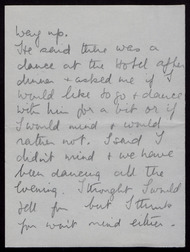 way up.
He said there was a
dance at the Hotel after
dinner & asked me if I
would like to go & dance
with him for a bit or if
I would mind & would
rather not. I said I
didn't mind & we have
been dancing all the
evening. I thought I would
tell you but I think
you won't mind either.